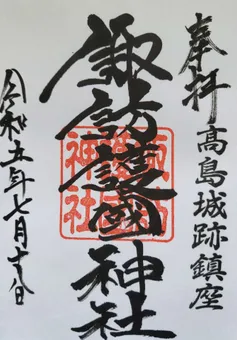 奉拝
高島城跡鎮座
諏訪護國神社
諏訪
護國
神社
令和五年七月